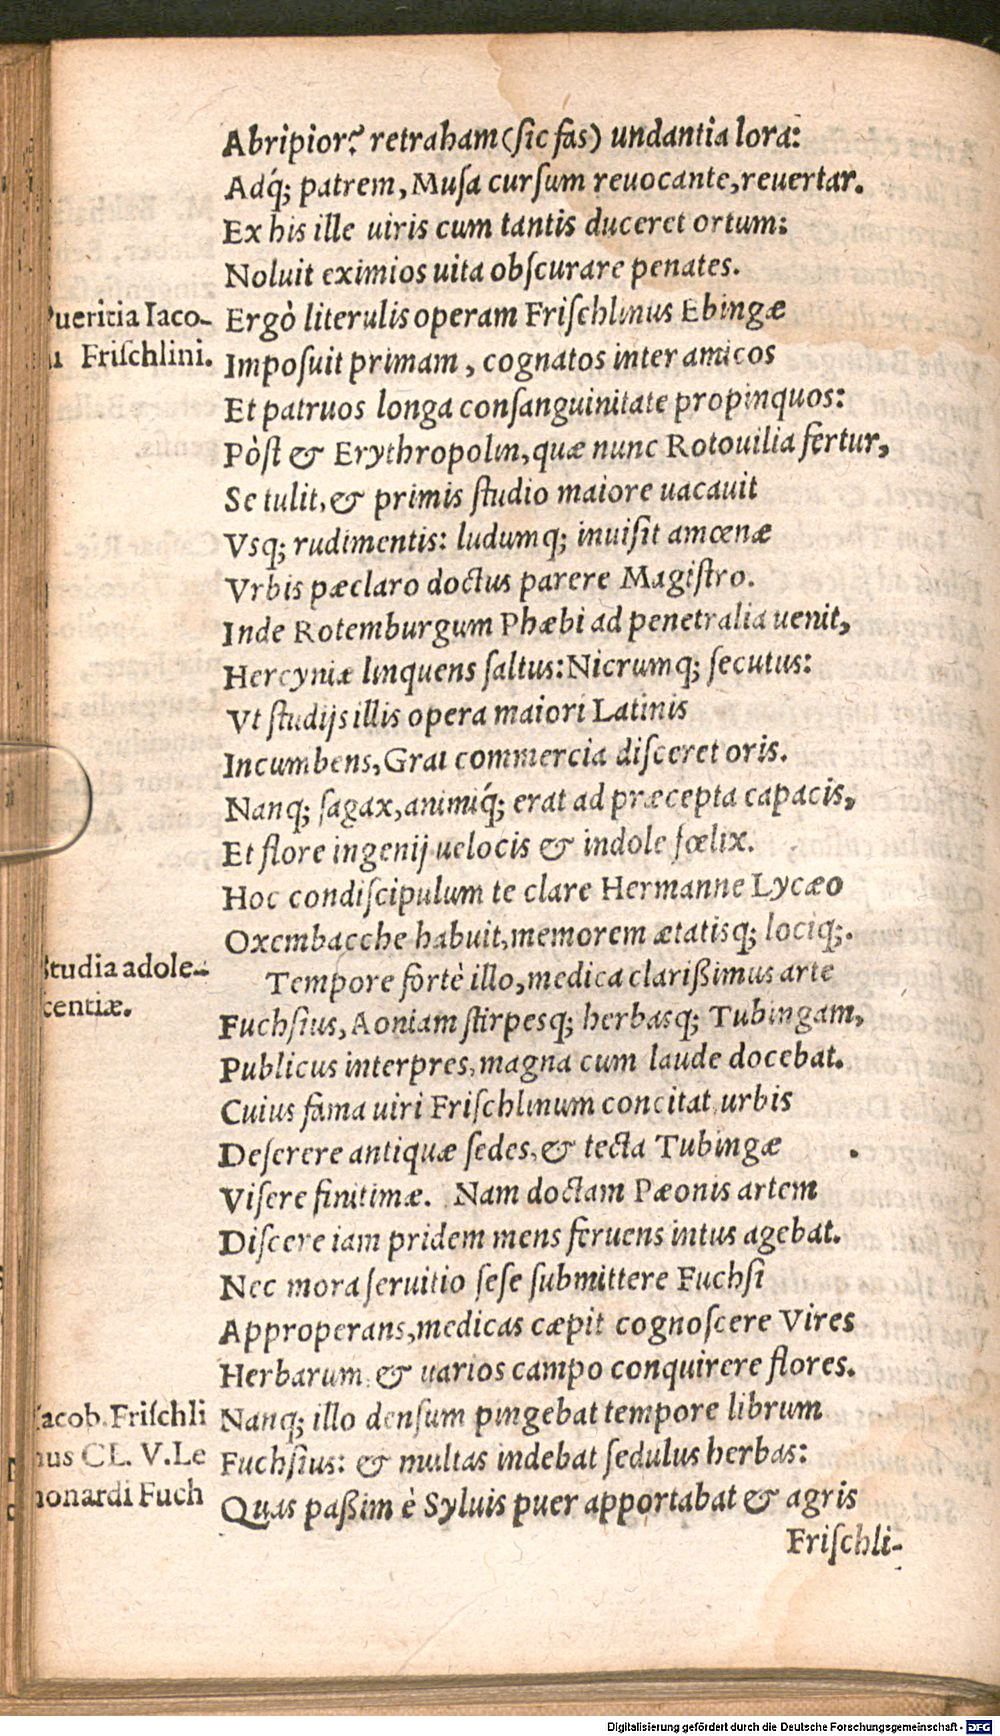 Abripior? retraham (ſic fas) undantia lora:
Adq́; patrem, Muſa curſum reuocante, reuertar.
Ex his ille uiris cum tantis duceret ortum:
Noluit eximios uita obſcurare penates.
Pueritia Iaco-
Ergò literulis operam Friſchlinus Ebingæ
Friſchlini.
Impoſuit primam, cognatos inter amicos
Et patruos longa conſanguinitate propinquos:
Pòſt & Erythropolin, quæ nunc Rotouilia fertur,
Se tulit, & primis ſtudio maiore uacauit
Vsq; rudimentis: ludumq; inuiſit amœnæ
Vrbis pæclaro doctus parere Magiſtro.
Inde Rotemburgum Phæbi ad penetralia uenit,
Hercyniæ linquens ſaltus: Nicrumq; ſecutus:
Vt ſtudijs illis opera maiori Latinis
Incumbens, Grai commercia diſceret oris.
Nanq; ſagax, animiq́; erat ad præcepta capacis,
Et flore ingenij uelocis & indole fœlix.
Hoc condiſcipulum te clare Hermanne Lycæo
Oxembacche habuit, memorem ætatisq; lociq;.
Studia adole-
Tempore fortè illo, medica clarißimus arte
centiæ.
Fuchſius, Aoniam ſtirpesq; herbasq; Tubingam,
Publicus interpres, magna cum laude docebat.
Cuius fama uiri Friſchlinum concitat, urbis
Deſerere antiquæ ſedes, & tecta Tubingæ
Viſere finitimæ. Nam doctam Pæonis artem
Diſcere iam pridem mens feruens intus agebat.
Nec mora ſeruitio ſeſe ſubmittere Fuchſi
Approperans, medicas cæpit cognoſcere Vires
Herbarum & uarios campo conquirere flores.
Iacob. Friſchli
Nanq; illo denſum pingebat tempore librum
nus CL. V. Le
Fuchſius: & multas indebat ſedulus herbas:
nonardi Fuch
Quas paßim è Syluis puer apportabat & agris
Friſchli-
Digitalisierung gefördert durch die Deutsche Forschungsgemeinschaft - DFG